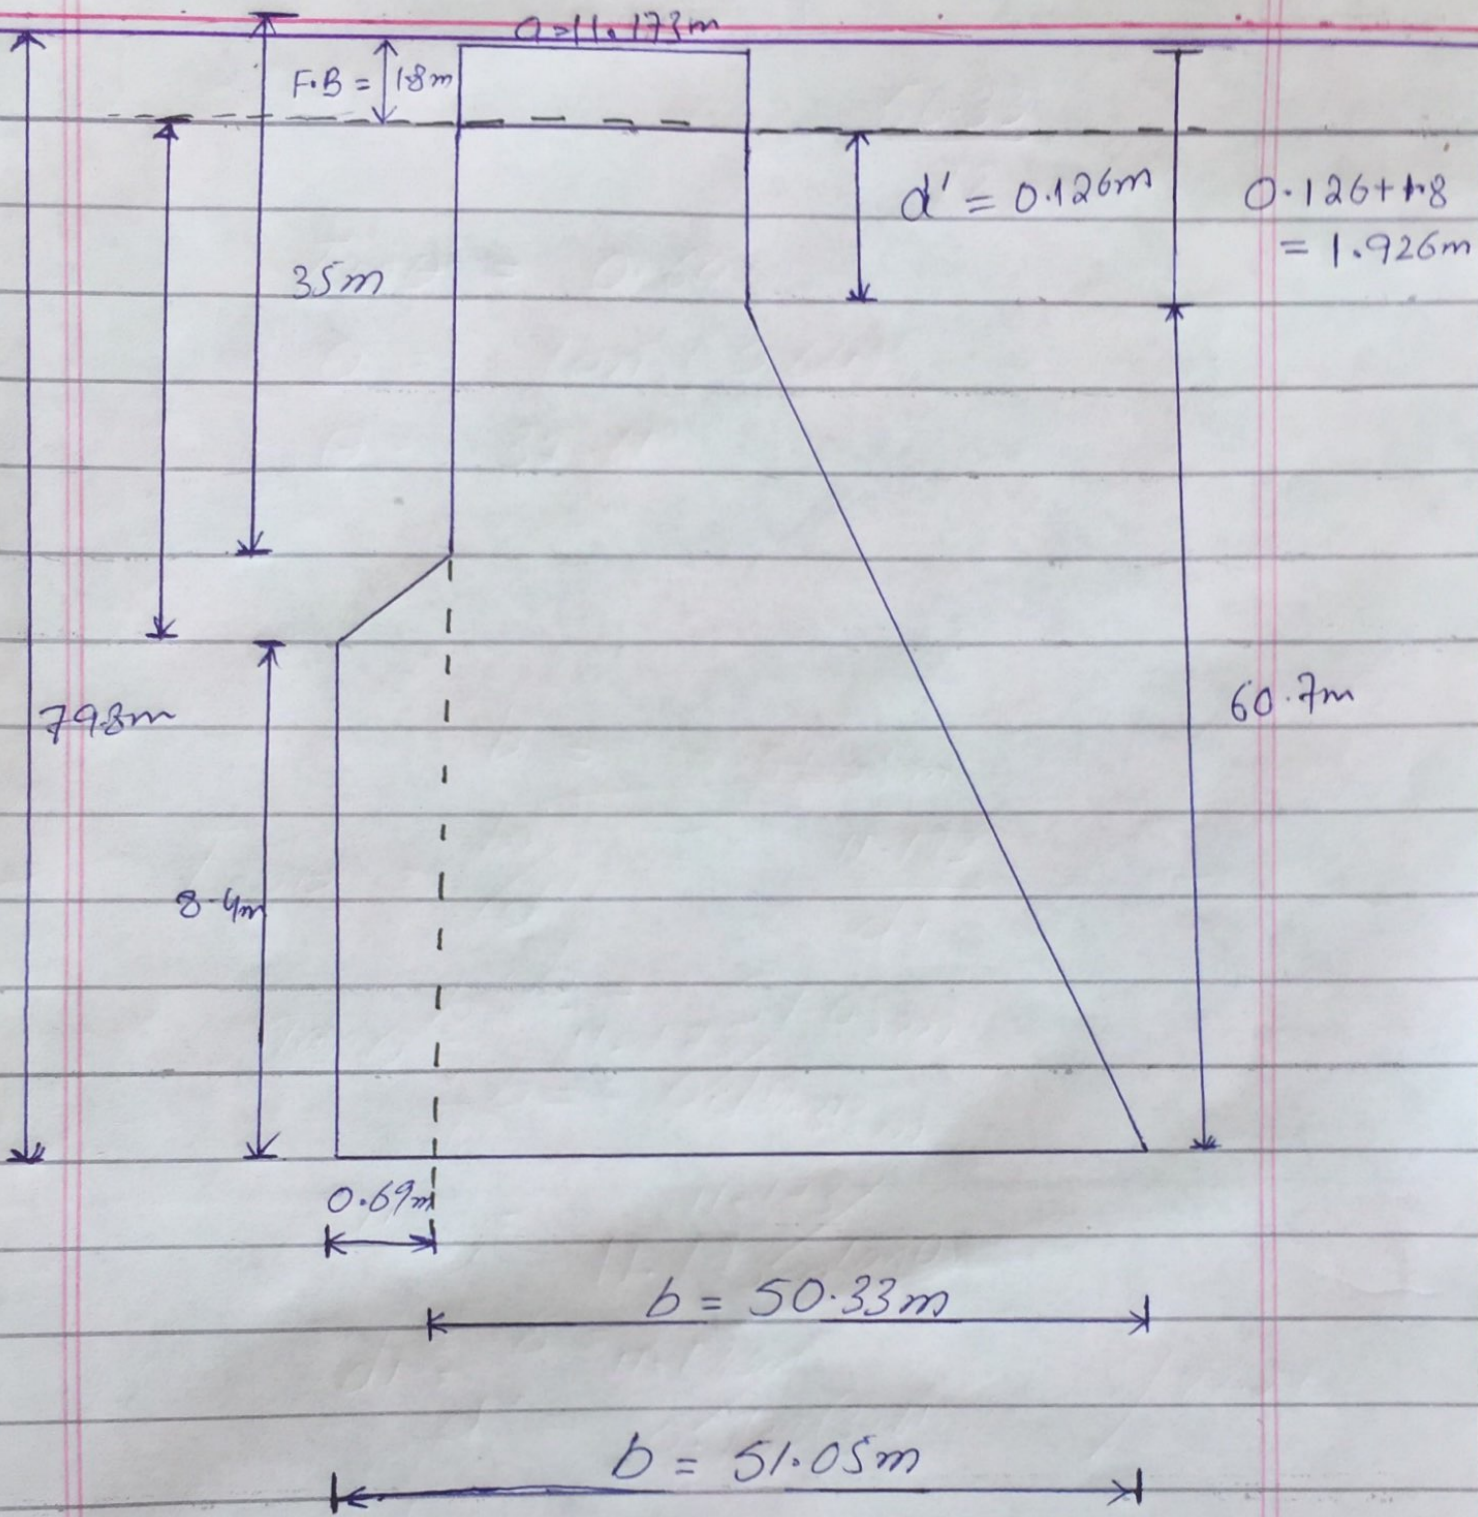 a=11.173m
F.B = 1.8m
d' = 0.126m
0.126+1.8
= 1.926m
35m
79.8m
60.7m
8.4m
0.69m
b = 50.33m
b = 51.05m